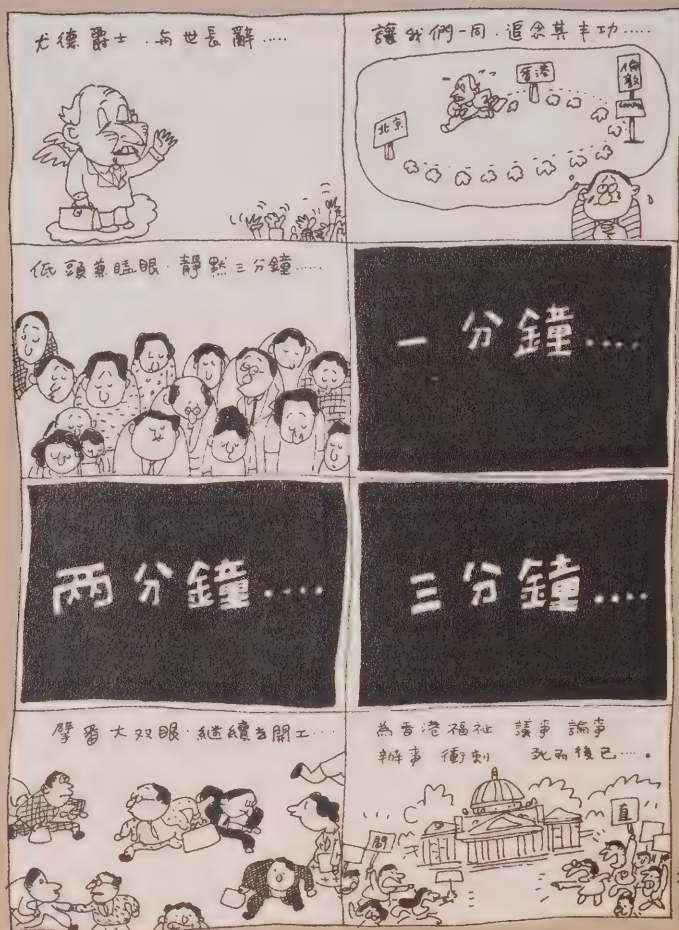 尤德爵士．与世長辭……
讓我們一同．追念其丰功……
香港
倫敦
北京
低頭兼瞌眼．靜默三分鐘……
一分鐘….
两分鐘….
三分鐘….
擘番大双眼．継續者開工…
為香港福祉 議事 論事
辦事 衝刺 死而後已….
直